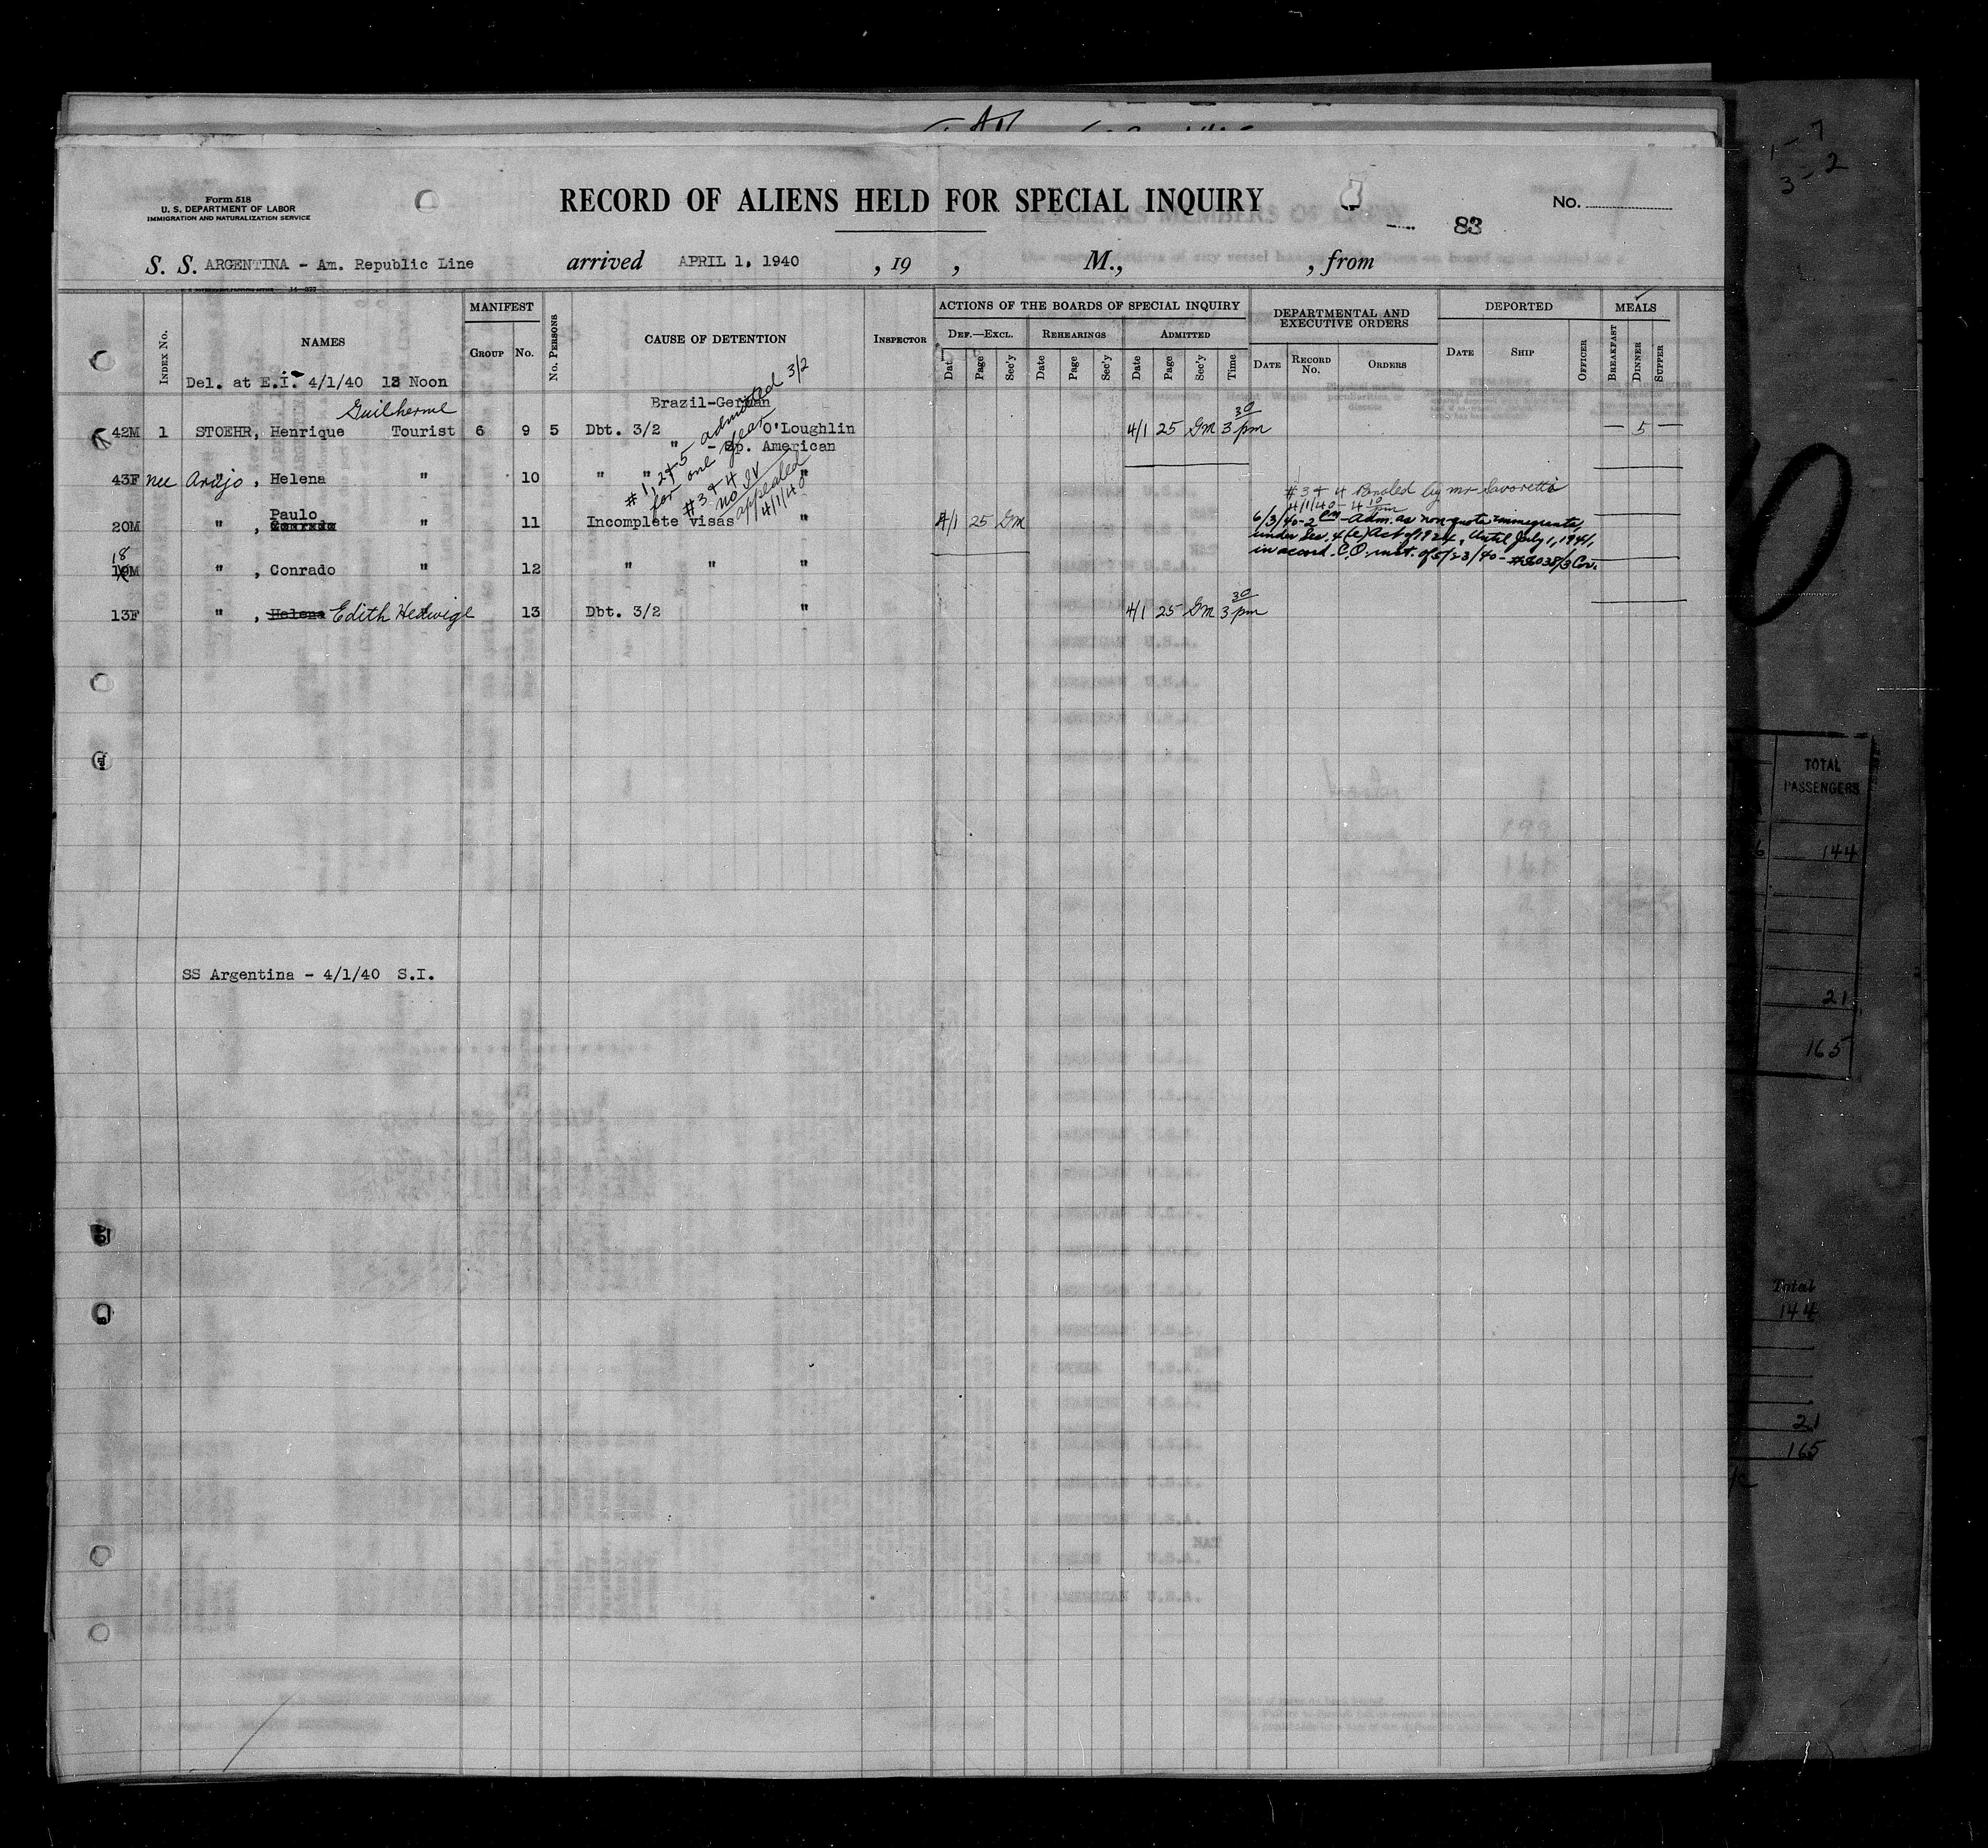 Form 518
U. S. DEPARTMENT OF LABOR
IMMIGRATION AND NATURALIZATION SERVICE
RECORD OF ALIENS HELD FOR SPECIAL INQUIRY
83
No.
S. S. ARGENTINA - Am. Republic Line arrived APRIL 1, 1940 , 19 , M., , from
MANIFEST
ACTIONS OF THE BOARDS OF SPECIAL INQUIRY
DEPARTMENTAL AND EXECUTIVE ORDERS
DEPORTED
MEALS
INDEX No.
NAMES
GROUP
No.
No. PERSONS
CAUSE OF DETENTION
INSPECTOR
DEF.—EXCL.
REHEARINGS
ADMITTED
Date Page Sec'y Date Page Sec'y Date Page Sec'y Time
DATE RECORD No. ORDERS
DATE SHIP OFFICER
BREAKFAST DINNER SUPPER
Del. at E.I. 4/1/40 12 Noon
Guilherme
Brazil-German
42M 1 STOEHR, Henrique Tourist 6 9 5 Dbt. 3/2 O'Loughlin 4/1 25 GM 3 30 pm — 5 —
" - Sp. American
43F nee Araujo, Helena " 10 " " "
#1, 2 & 5 admitted 3/2
for one year
#3 & 4
no IV
appealed
4/1/40
#3 & 4 Paroled by Mr Savoretti
4/1/40 - 4 10 pm
Paulo
20M " , Conrado " 11 Incomplete visas " 4/1 25 GM
6/3/40-2 PM - Adm. as non-quota immigrants,
under Sec. 4(e) Act of 1924, Until July 1, 1941,
in accord. C.O. inst. of 5/23/40 -
18
19M " , Conrado " 12 " " "
13F " , Helena Edith Hedwige 13 Dbt. 3/2 " 4/1 25 GM 3 30 pm
SS Argentina - 4/1/40 S.I.
1 - 7
3 - 2
TOTAL
PASSENGERS
6 144
21
165
Total
144
21
165